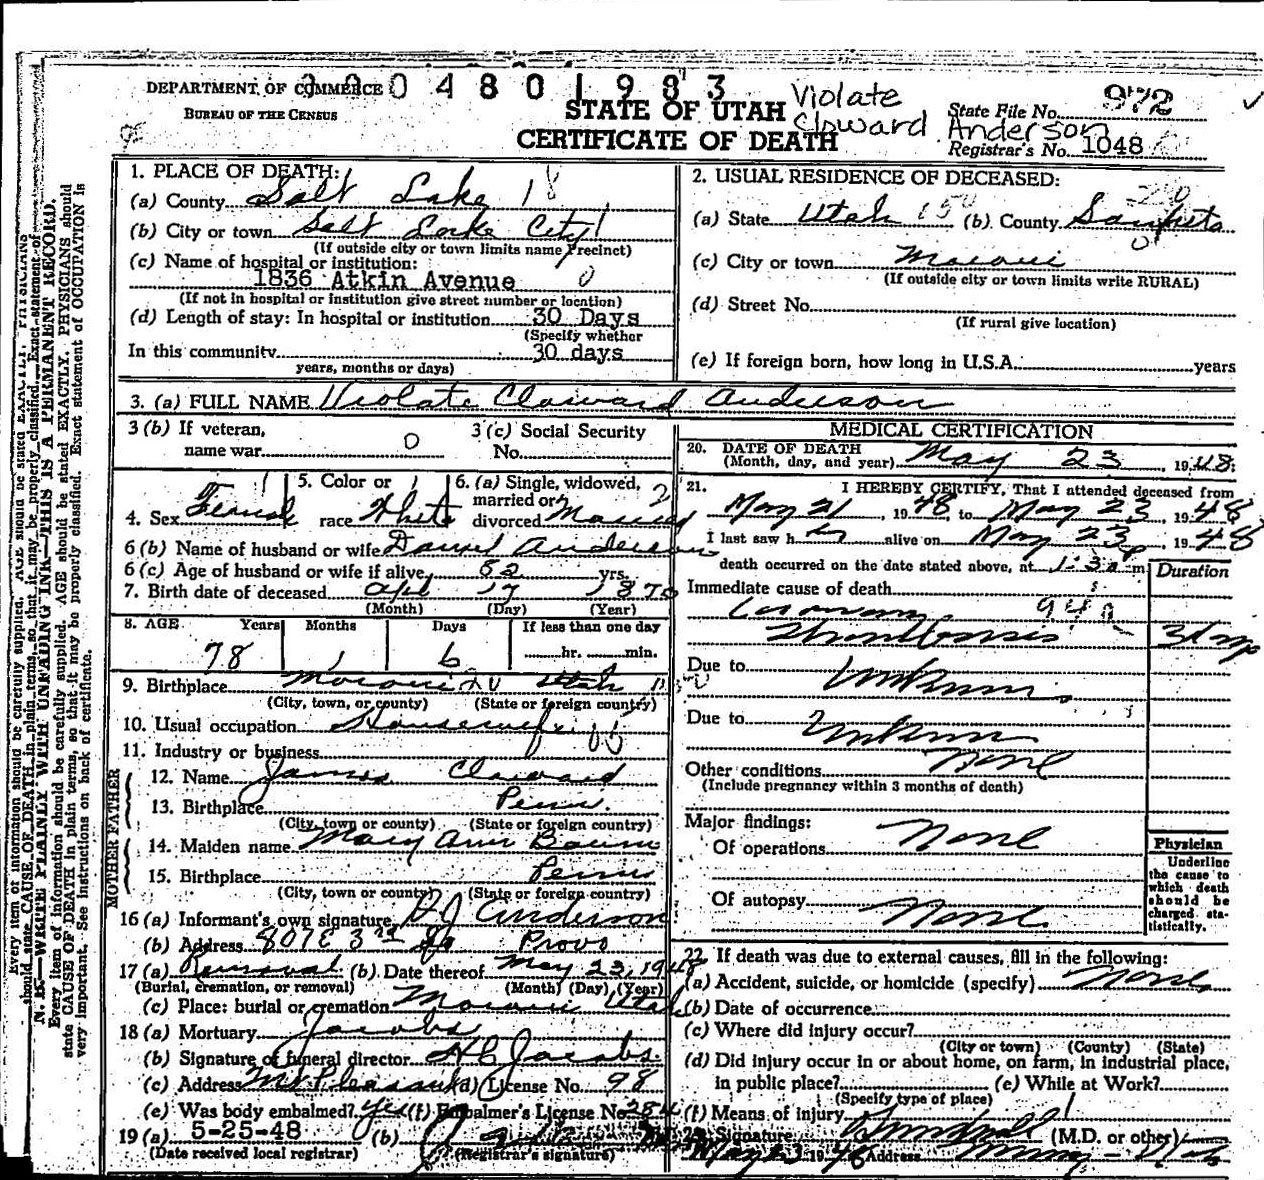 DEPARTMENT OF COMMERCE
BUREAU OF THE CENSUS
STATE OF UTAH
CERTIFICATE OF DEATH
Violate
Cloward Anderson
State File No. 972
Registrar's No. 1048
1. PLACE OF DEATH:
(a) County Salt Lake 18
(b) City or town Salt Lake City 1
(If outside city or town limits name Precinct)
(c) Name of hospital or institution:
1836 Atkin Avenue 0
(If not in hospital or institution give street number or location)
(d) Length of stay: In hospital or institution 30 Days
(Specify whether
In this community 30 days
years, months or days)
2. USUAL RESIDENCE OF DECEASED:
(a) State Utah (b) County Sanpete
(c) City or town Moroni
(If outside city or town limits write RURAL)
(d) Street No.
(If rural give location)
(e) If foreign born, how long in U.S.A. years
3. (a) FULL NAME Violate Cloward Anderson
3 (b) If veteran, name war 0
3 (c) Social Security No.
4. Sex Female
5. Color or race White
6. (a) Single, widowed, married or divorced Married
6 (b) Name of husband or wife Daniel Anderson
6 (c) Age of husband or wife if alive 82 yrs.
7. Birth date of deceased Apl 17 1870
(Month) (Day) (Year)
8. AGE Years Months Days If less than one day
78 1 6 hr. min.
9. Birthplace Moroni Utah
(City, town, or county) (State or foreign country)
10. Usual occupation Housewife
11. Industry or business
FATHER
12. Name James Cloward
13. Birthplace Penn.
(City, town or county) (State or foreign country)
MOTHER
14. Maiden name Mary Ann
15. Birthplace Penn
(City, town or county) (State or foreign country)
16 (a) Informant's own signature D J Anderson
(b) Address 807 E 3rd So Provo
17 (a) Removal (b) Date thereof May 23, 1948
(Burial, cremation, or removal) (Month) (Day) (Year)
(c) Place: burial or cremation Moroni Utah
18 (a) Mortuary Jacobs
(b) Signature of funeral director H C Jacobs
(c) Address Mt Pleasant (d) License No. 98
(e) Was body embalmed? Yes (f) Embalmer's License No. 284
19 (a) 5-25-48 (b)
(Date received local registrar) (Registrar's signature)
MEDICAL CERTIFICATION
20. DATE OF DEATH
(Month, day, and year) May 23, 1948
21. I HEREBY CERTIFY, That I attended deceased from
May 21, 1948 to May 23, 1948
I last saw her alive on May 23, 1948
death occurred on the date stated above, at 1:30 p m
Duration
Immediate cause of death
Coronary 94a
Thrombosis 3 days
Due to Unknown
Due to Unknown
Other conditions None
(Include pregnancy within 3 months of death)
Major findings:
Of operations None
Of autopsy None
Physician
Underline the cause to which death should be charged statistically.
22. If death was due to external causes, fill in the following:
(a) Accident, suicide, or homicide (specify) None
(b) Date of occurrence
(c) Where did injury occur?
(City or town) (County) (State)
(d) Did injury occur in or about home, on farm, in industrial place,
in public place? (e) While at Work?
(Specify type of place)
(f) Means of injury
Signature (M.D. or other)
May 23 1948 Address Murray - Utah
N. B.—WRITE PLAINLY WITH UNFADING INK—THIS IS A PERMANENT RECORD.
Every item of information should be carefully supplied. AGE should be stated EXACTLY. PHYSICIANS should
state CAUSE OF DEATH in plain terms, so that it may be properly classified. Exact statement of OCCUPATION is
very important. See instructions on back of certificate.